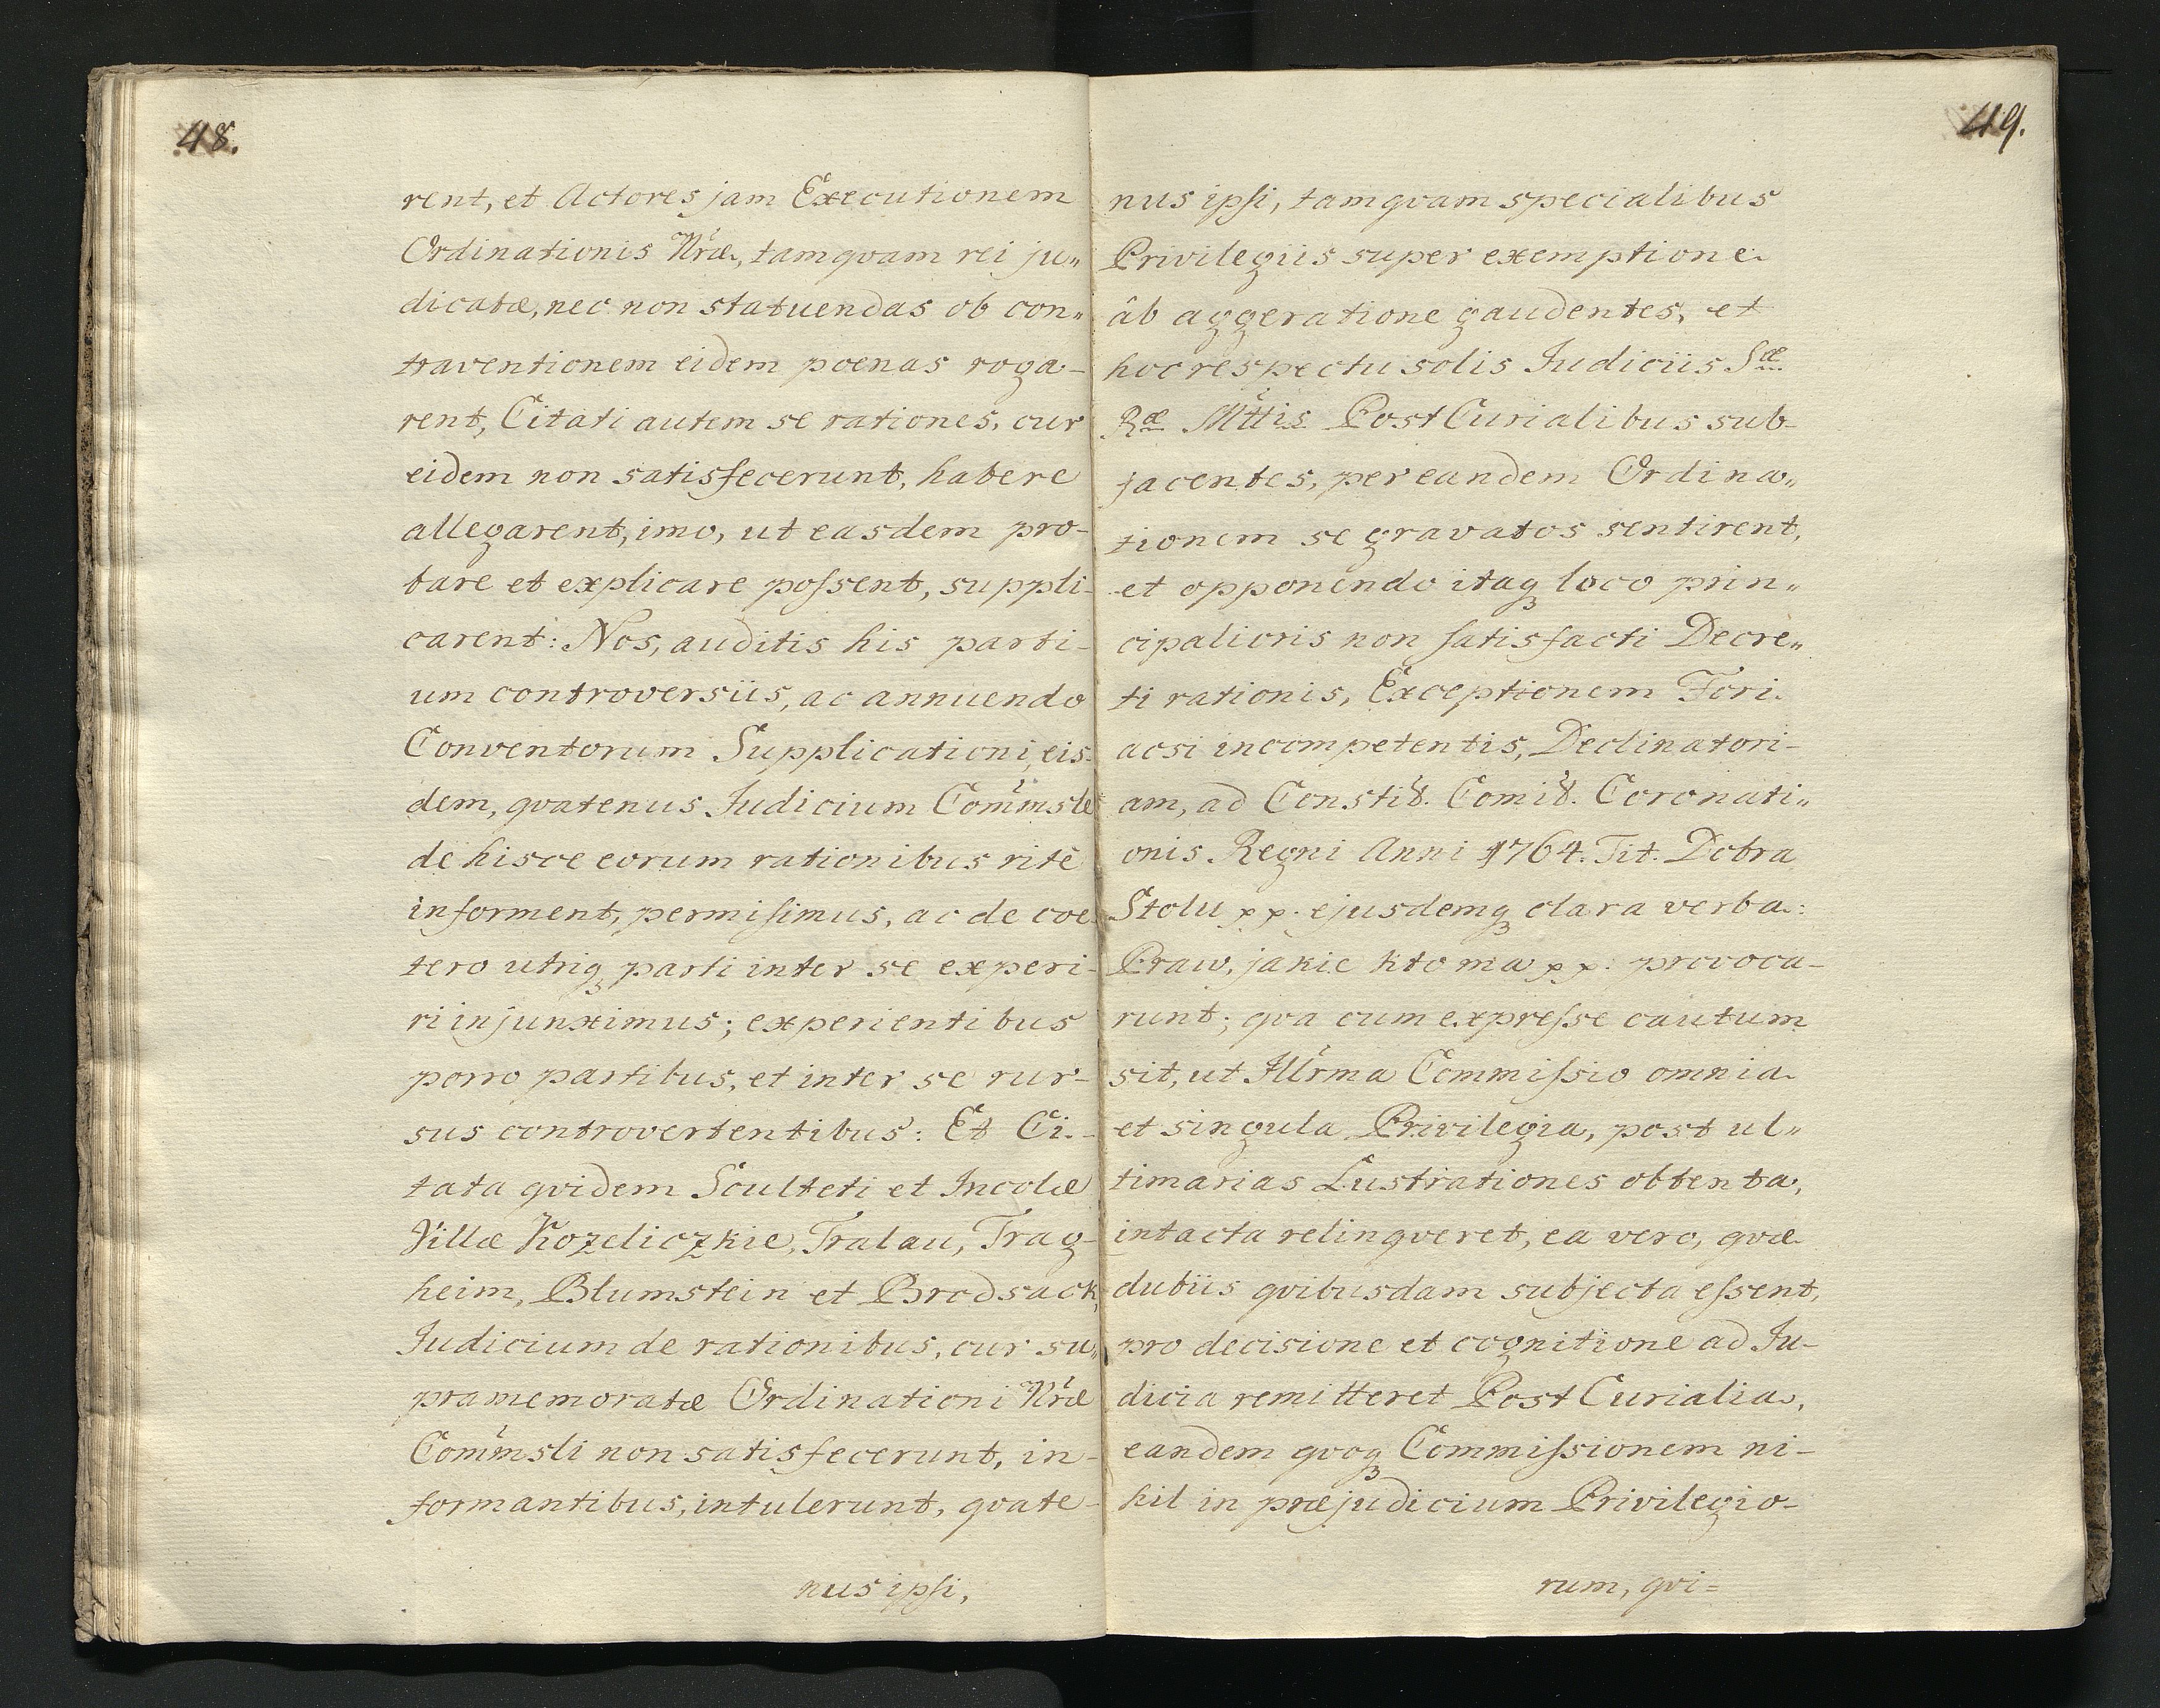 48.
rent, et Actores jam Executionem
Ordinationis Nræ, tamqvam rei ju„
dicatæ, nec non statuendas ob con„
traventionem eidem poenas roga-
rent, Citati autem se rationes, cur
eidem non satisfecerunt, habere
allegarent, imo, ut easdem pro-
bare et explicare poſsent, suppli-
carent: Nos, auditis his parti-
um controversiis, ac annuendo
Conventorum Supplicationi, eis-
dem, qvatenus Judicium Com̃msle
de hisce eorum rationibus ritè
informent, permiſimus, ac de coe-
tero utriq̃ parti inter se experi-
ri injunximus; experientibus
porro partibus, et inter se rur-
sus controvertentibus: Et Ci-
tata qvidem Sculteti et Incolæ
Villæ Kozeliczkie, Tralau, Trag-
heim, Blumstein et Brodsack,
Judicium de rationibus, cur su„
pramemoratæ Ordinationi Nræ
Com̃msli non satisfecerunt, in-
formantibus, intulerunt, qvate-
nus ipſi,
49.
nus ipſi, tamqvam specialibus
Privilegiis super exemptione
âb aggeratione gaudentes, et
hoc respectu solis Judiciis Sæ
Ræ Mttis Post Curialibus sub-
jacentes, per eandem Ordina„
tionem se gravatos sentirent,
et opponendo itaq̃ loco prin„
cipalioris non ſatisfacti Decre„
ti rationis, Exceptionem Fori
acsi incompetentis, Declinatori-
am, ad Constit. Comit. Coronati„
onis Regni Anni 1764. Tit. Dobra
Stolu pp. ejusdemq̃ clara verba:
Praw, jakie kto ma pp: provoca-
runt; qva cum expreſse cautum
sit, ut Jllrma Commiſsio omnia
et singula Privilegia, post ul„
timarias Lustrationes obtenta,
intacta relinqveret, ea vero, qvæ
dubiis qvibusdam subjecta eſsent,
pro decisione et cognitione ad Ju-
dicia remitteret Post Curialia,
eandem qvoq̃ Commiſsionem ni-
hil in præjudicium Privilegio-
rum, qvi=